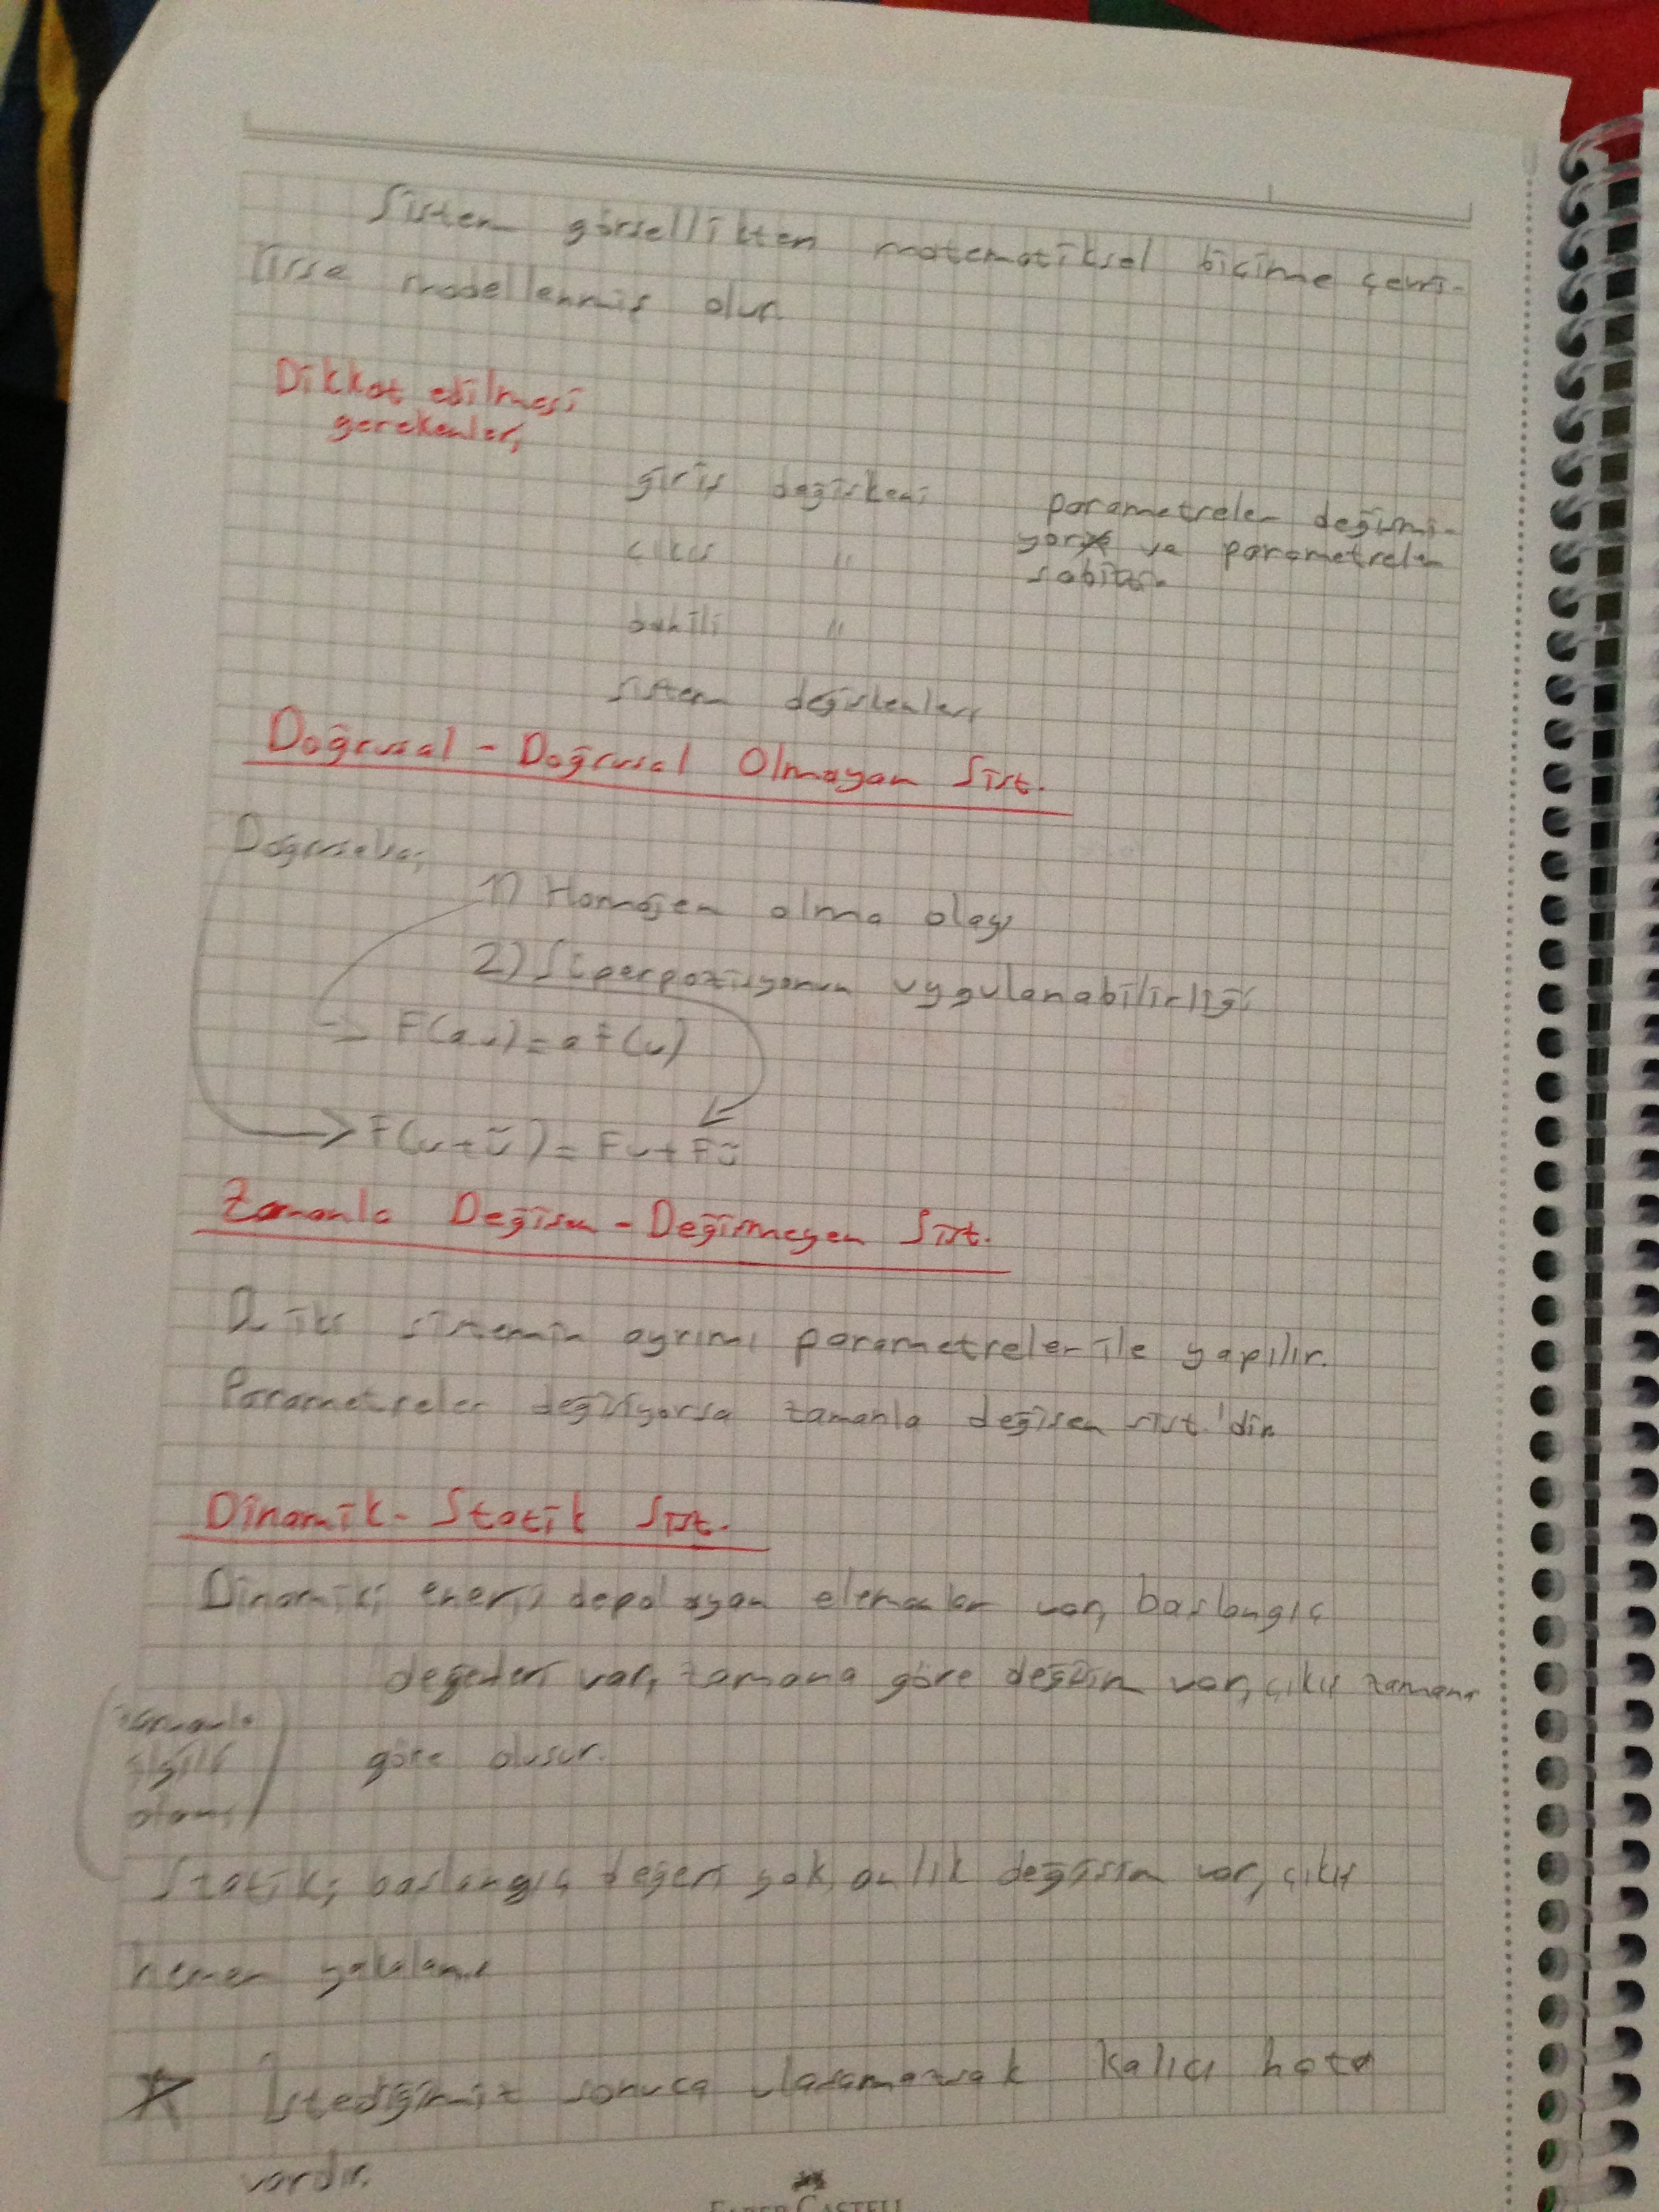 Sistem görsellikten matematiksel biçime çevri-
lirse modellenmiş olur.
Dikkat edilmesi
gerekenler;
giriş değişkeni
parametreler değişmi-
yor ve parametreler
sabitse
çıkış "
dahili "
sistem değişkenleri
Doğrusal - Doğrusal Olmayan Sist.
Doğrusalsa;
1) Homojen olma olayı
2) Süperpozisyonun uygulanabilirliği
→ F(au) = aF(u)
→ F(u+ũ) = Fu+Fũ
Zamanla Değişen - Değişmeyen Sist.
iki sistemin ayrımı parametreler ile yapılır.
Parametreler değişiyorsa zamanla değişen sist.'dir
Dinamik - Statik Sist.
Dinamik; enerji depolayan elemanlar var, başlangıç
değerleri var, zamana göre değişim var, çıkış zamana
göre oluşur.
zamanla
ilgili
olanı
Statik; başlangıç değeri yok, anlık değişim var, çıkış
hemen yakalanır
İstediğimiz sonuca ulaşamazsak kalıcı hata
vardır.
FABER-CASTELL